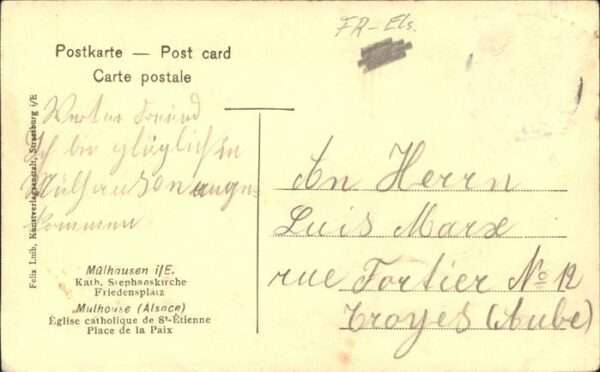 FR-Els.
Postkarte — Post card
Carte postale
Werter Freund
Ich bin glüglich in
Mülhausen ange
kommen
Felix Luib, Kunstverlagsanstalt, Strassburg i/E
Mülhausen i/E.
Kath. Stephanskirche
Friedensplatz
Mulhouse (Alsace)
Église catholique de St-Étienne
Place de la Paix
An Herrn
Luis Marx
rue Fortier No 12
Troyes (Aube)